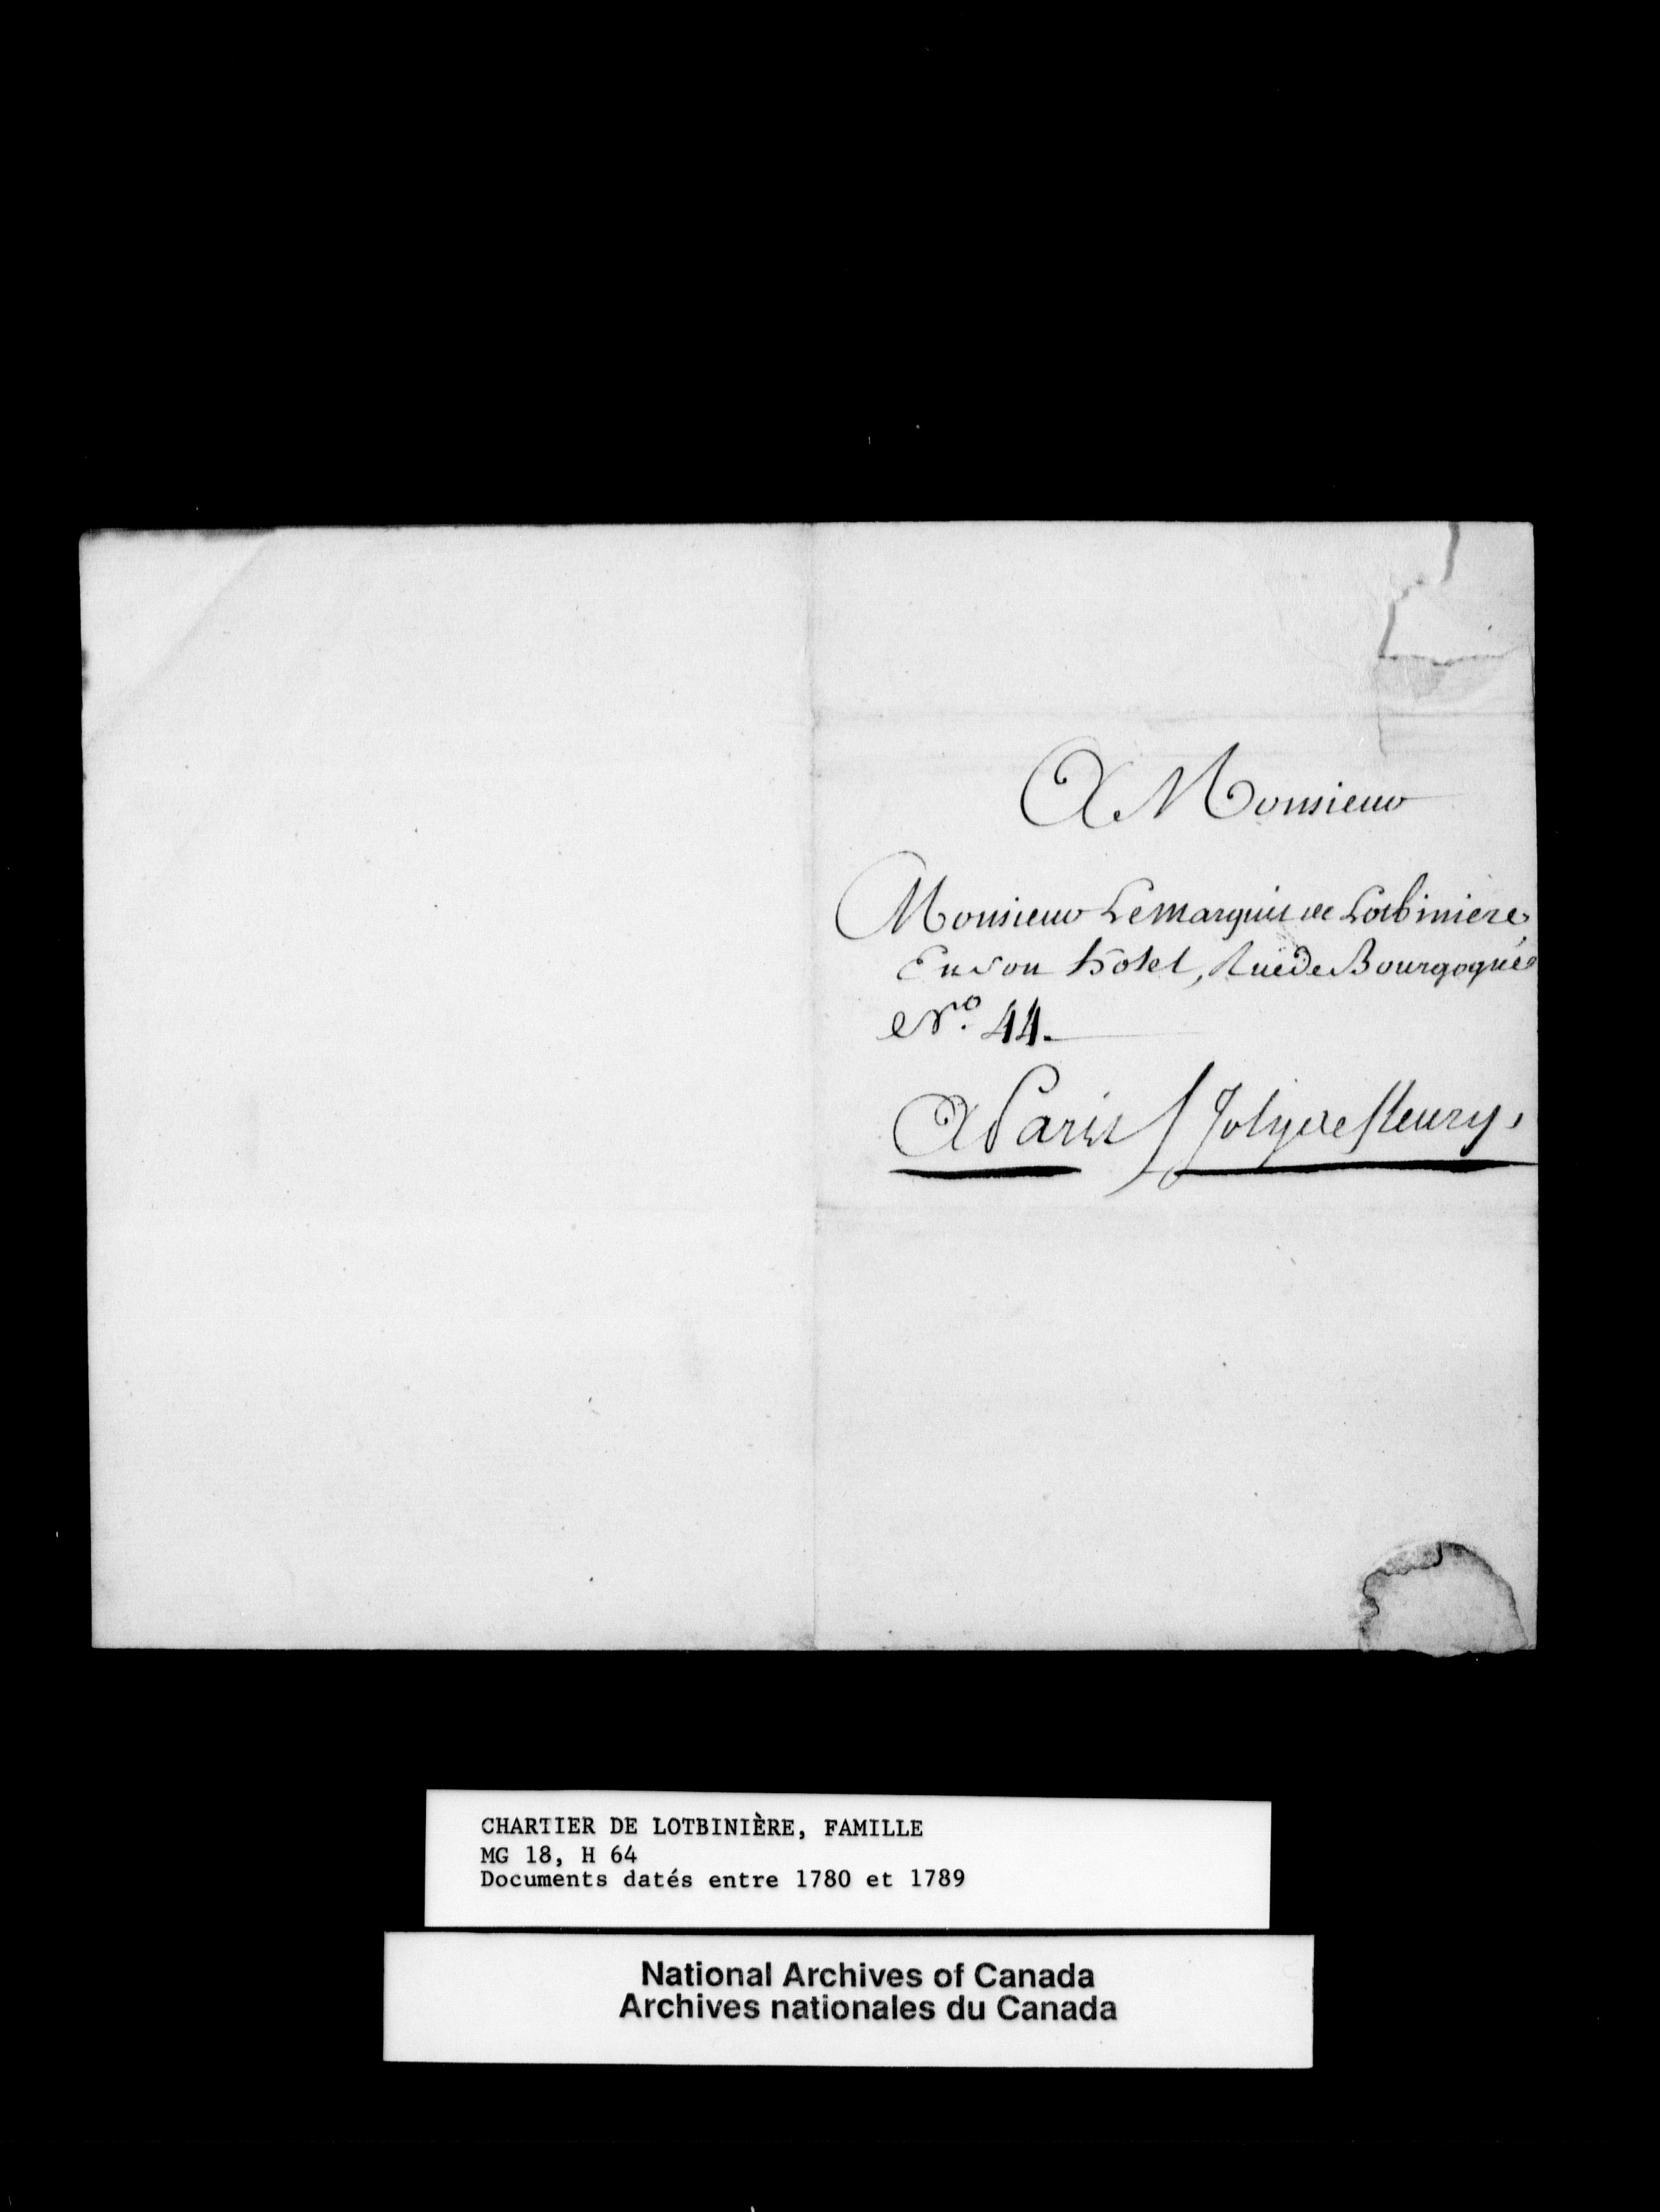 A Monsieur
Monsieur Le marquis de Lotbiniere
En son hotel, Rue de Bourgogne
N.º 44.
A Paris / Joly de fleury,
CHARTIER DE LOTBINIÈRE, FAMILLE
MG 18, H 64
Documents datés entre 1780 et 1789
National Archives of Canada
Archives nationales du Canada